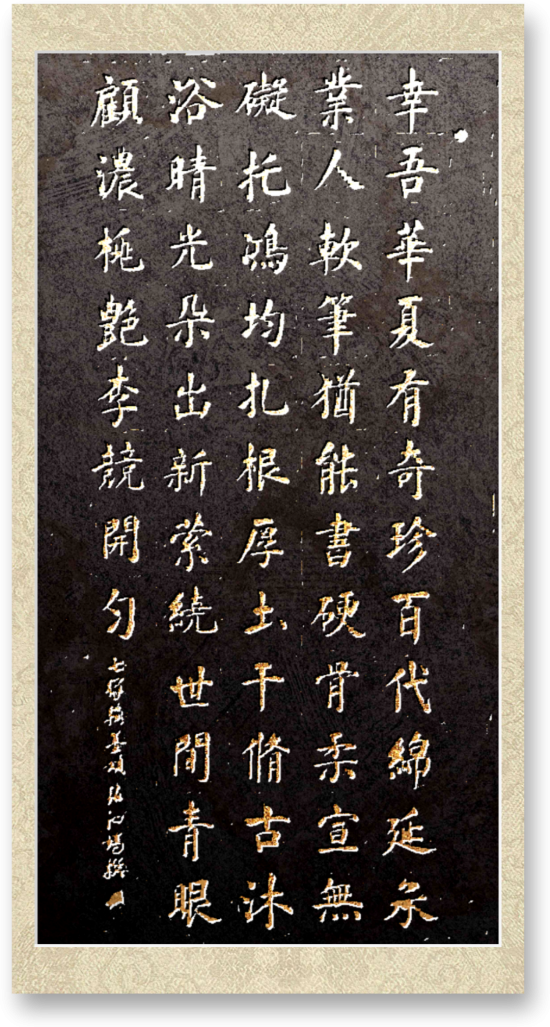 幸吾華夏有奇珍百代綿延尒
業人軟筆猶能書硬骨柔宣無
礙托鴻均扎根厚土干脩古沐
浴晴光朵出新縈繞世間青眼
顧濃桃艷李競開勻